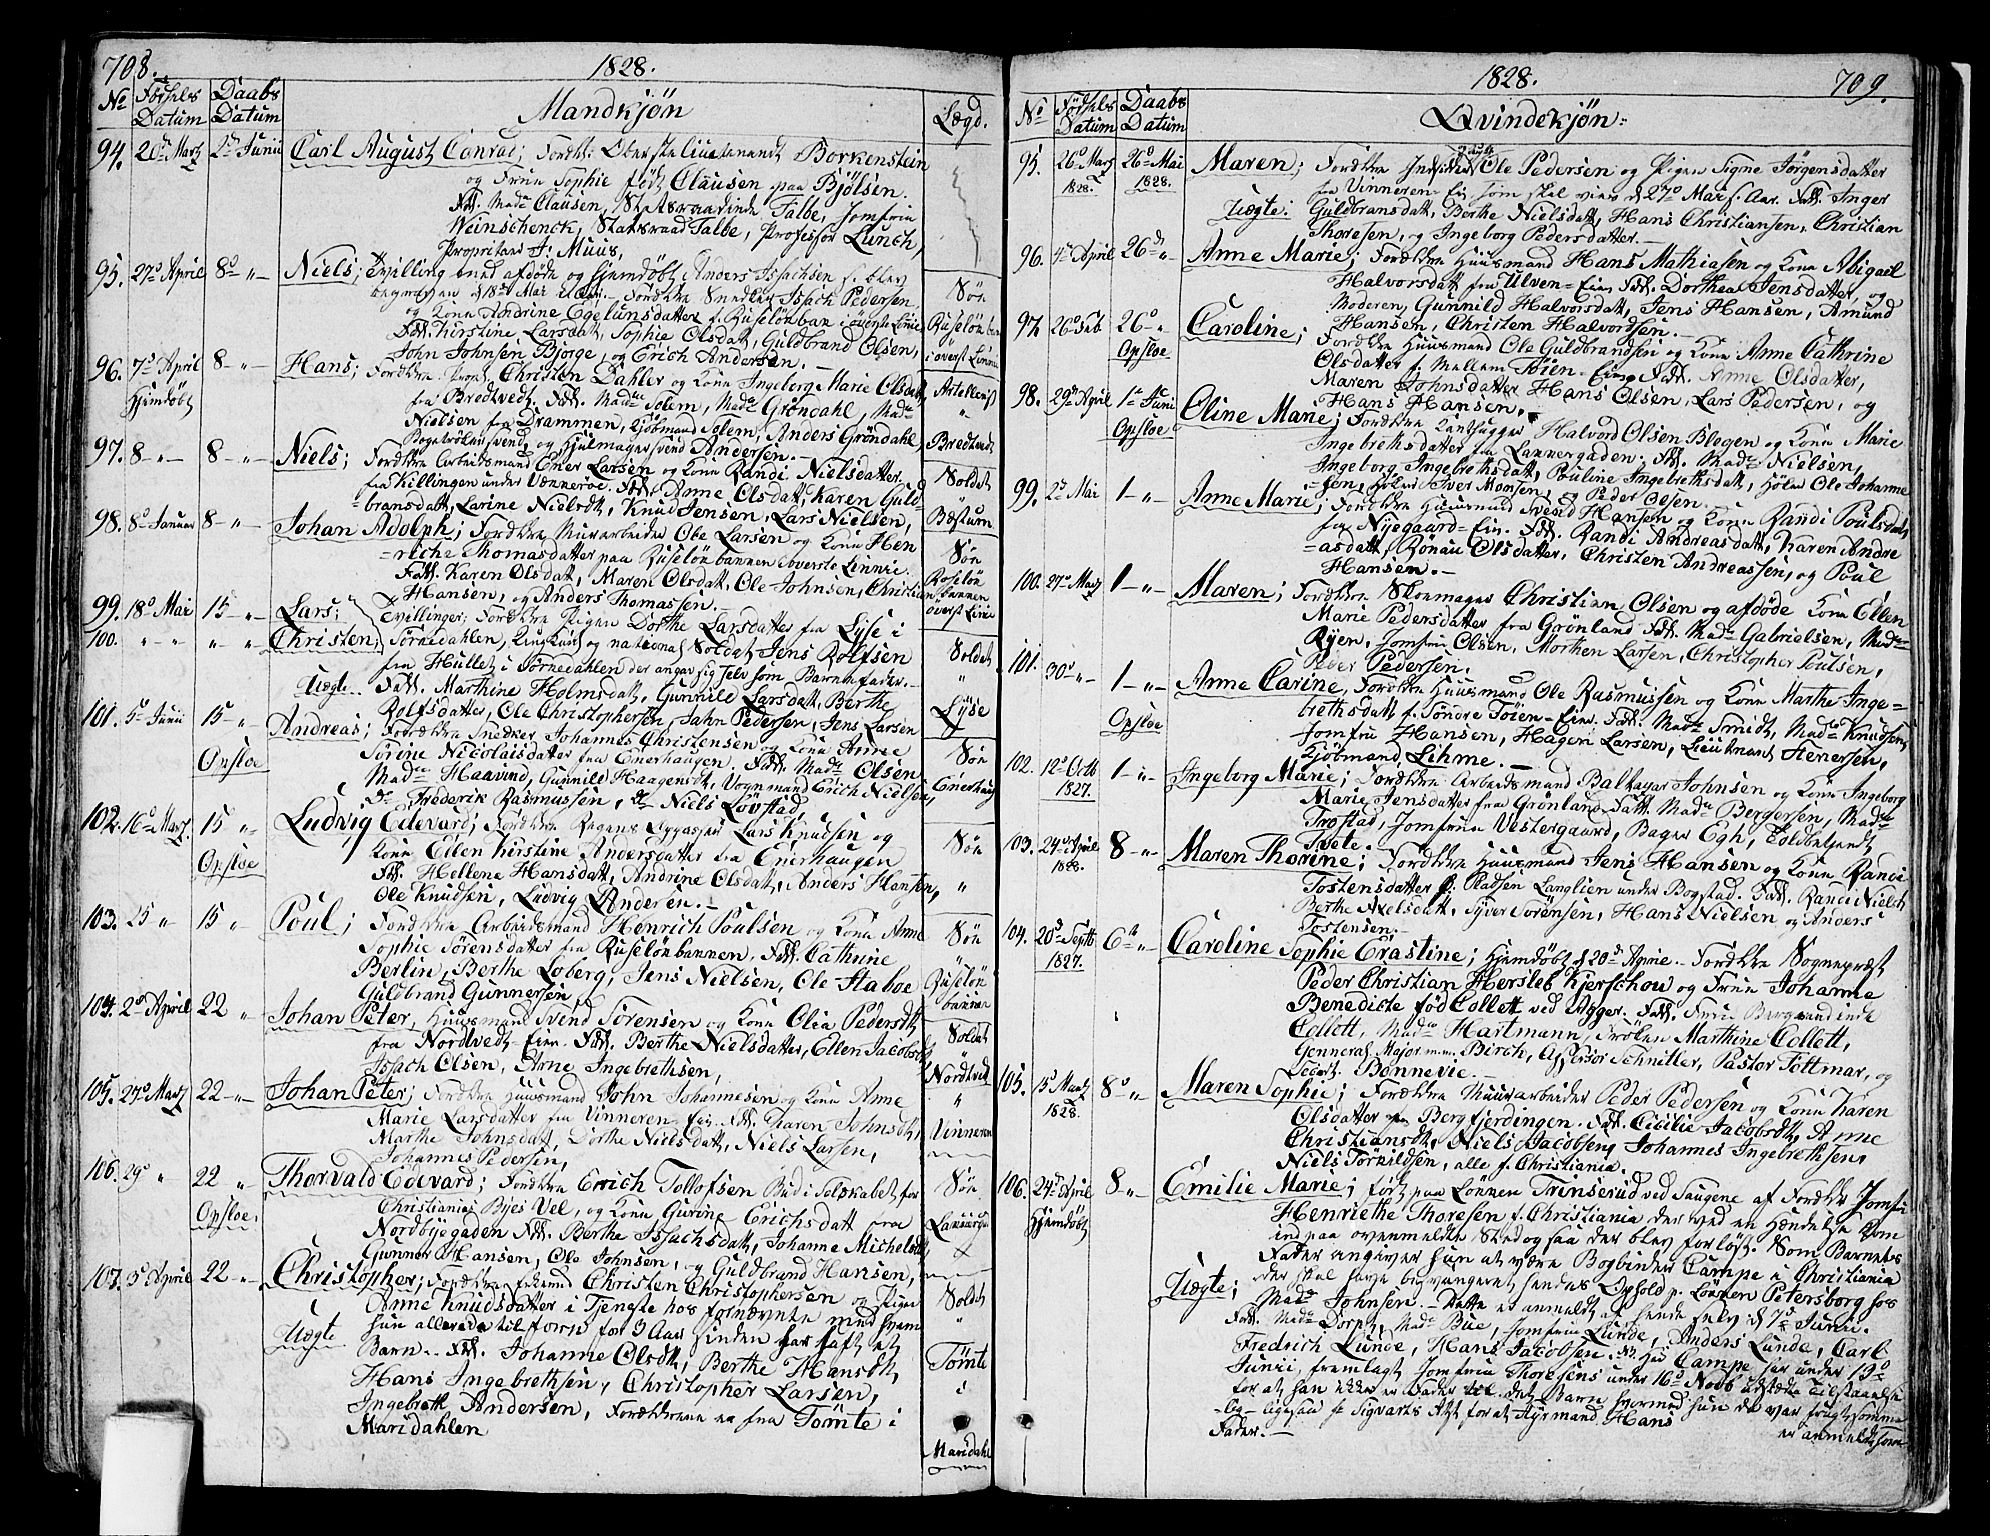 708.
1828.
No Fødsels Datum
Daabs Datum
Mandkjøn
Lægd.
94. 20de Martz 2den Junii Carl August Conrad; Forældre: Oberstelieutenandt Borkenstein
og Frue Sophie født Clausen paa Bjølsen.
Fadd. Mad. Clausen, Statsraadinde Falbe, Jomfru
Weinschenck, Statsraad Falbe, Professor Lunch,
Proprietær J. Muus,
95. 27de April 8de " Niels; Tvilling med afdøde og hjemdøbt Anders Issachsen
18de Mai Forældre Issach Pedersen
og Kone Andrine Egelunsdatter f. Ruseløkban i øverste Linie
Fadd. Kirstine Larsdatt, Sophie Olsdatt, Guldbrand Olsen,
John Johnsen Bjorge, og Erich Andersen.
Søn
Ruseløkban
i øverst Linnie
96. 7de April 8 - " - Hans; Forældre Christen Dahler og Kone Ingeborg Marie Olsdatt
Hjemdøbt
fra Bredtvedt. Fadd. Madme Solem, Made Grøndahl, Made
Nielsen fra Drammen, Kjøbmand Solem, Anders Grøndahl,
og Hjulmagersvend Andersen.
Bredtvedt
97. 8 - " - 8 - " - Niels; Forældre Arbeidsmand Ener Larsen og Kone Randi Nielsdatter,
fra Killingen under Vækkerøe. Fadd. Anne Olsdatt, Karen Guld-
bransdatt, Larine Nielsdt, Knud Jensen, Lars Nielsen,
Soldat
"
Bæstum
98. 8de Januar 8 - " - Johan Adolph; Forældre Murarbeider Ole Larsen og Kone Hen-
=riche Thomasdatter paa Ruseløkbannen i øverste Linnie.
Fadd. Karen Olsdatt, Maren Olsdatt, Ole Johnsen, Christian
Hansen, og Anders Thomassen.
Søn
Roseløk
bannen
øverst Linie
99. 18de Mai 15 - " - Lars;
100. " - " " " Christen;
Tvillinger; Forældre Pigen Dorthe Larsdatter fra Lyse i
Sørkedahlen, Ungkarl og national Soldat Jens Rolfsen
fra Hullet i Sørkedahlen der angav sig selv som Barnefader.
Uægte
Fadd. Marthine Holmsdatt, Gunnild Larsdatt, Berthe
Rolfsdatter, Ole Christophersen, Jahn Pedersen, Jens Larsen
Soldat
"
Lyse
101. 5te Junii 15 - " - Andreas; Forældre Snedker Johannes Christensen og Kone Anne
Opsloe
Sørine Nicolaisdatter fra Enerhaugen. Fadd. Made Olsen
Made Haavind, Gunnild Haagensdt, Vognmand Erich Nielsen,
do Frederik Rasmussen, do Niels Løvstad,
Søn
"
Enerhaug
102. 16de Martz. 15 " Ludvig Edevard; Forældre Lars Knudsen og
Opsloe
Kone Ellen Kirstine Andersdatter fra Enerhaugen
Fadd. Hellene Hansdatt, Andrine Olsdatt, Anders Hansen,
Ole Knudsen, Ludvig Andersen.
Søn
"
103. 25 " 15 " Poul; Forældre Arbeidsmand Henrich Poulsen og Kone Anne
Sophie Sørensdatter fra Ruseløkbannen. Fadd. Cathrine
Berlin, Berthe Loberg, Jens Nielsen, Ole Haboe
Guldbrand Gunnersen,
Søn
"
Ruseløk
bannen
104. 2de April 22 " Johan Peter, Huusmand Svend Sørensen og Kone Olia Pedersdtt
fra Nordtvedt Eien. Fadd. Berthe Nielsdatter, Ellen Jacobsdtt,
Issach Olsen, Arne Ingebrethsen,
Soldat
"
Nordtvedt
105. 27de Martz 22 - " - Johan Peter; Forældre Huusmand John Johannesen og Kone Anne
Marie Larsdatter fra Vinneren Eie. Fadd. Karen Johnsdt,
Marthe Johnsdatt, Dorthe Nielsdatt, Niels Larsen,
Johannes Pedersen,
"
Vinneren
106. 29de " 22 " Thorvald Edevard; Forældre Erich Tollofsen Bud i Selskabet for
Opsloe.
Christianias Byes Vel, og Kone Gurine Erichsdatt fra
Nordbyegaden Fadd. Berthe Issachsdatt, Johanne Michelsdt
Gunner Hansen, Ole Johnsen, og Guldbrand Hansen,
Søn
107. 3de April 22 - " Christopher; Forældre Enkemd Christen Christophersen og Pigen
Anne Knudsdatter i Tjeneste hos fornævnte med hvem
hun allerede til forn for 3 Aar siden har haft et
Uægte
Barn. Fadd. Johanne Olsdt, Berthe Hansdt
Hans Ingebrethsen, Christopher Larsen,
Ingebreth Andersen, Forældrene ere fra Tømte i
Maridahlen
Soldat
"
Tømte
i
Maridahl
1828.
709.
No Fødsels Datum
Daabs Datum
Qvindekjøn
95. 26de Martz 1828. 26de Mai 1828. Maren; Forældre Inderster Ole Pedersen og Pigen Signe Jørgensdatter
fra Vinneren Eie som skal vies d 27de Mai s. Aar. Fadd. Inger
Uægte: Guldbransdatt, Berthe Nielsdatt, Hans Christiansen, Christian
Thoresen, og Ingeborg Pedersdatter.
96. 4de April 26de " Anne Marie; Forældre Huusmand Hans Mathiesen og Kone Abigael
Halvorsdatt fra Ulven Eie. Fadd. Dorthea Jensdatter, og
Moderen, Gunnild Halvorsdatt, Jens Hansen, Amund
Hansen, Christen Halvordsen.
97. 26de Feb. 26de " Caroline; Forældre Huusmand Ole Guldbrandsen og Kone Anne Cathrine
Opsloe
Olsdatter f. Mellem Tøien Eie. Fadd. Anne Olsdatter,
Maren Johnsdatter, Hans Olsen, Lars Pedersen, og
Hans Hansen.
98. 29de April 1ste Juni Oline Marie; Forældre Halvord Olsen Blegen og Kone Marie
Opsloe
Ingebrethsdatter fra Lakkergaden. Fadd. Made Nielsen,
Ingeborg Ingebrethsdatt, Pouline Ingebrethsdatt, Ole Johanne-
sen, Iver Monsen, og Peder Olsen.
99. 2de Mai 1 - " - Anne Marie; Forældre Huusmand Svend Hansen og Kone Randi Poulsdatt
fra Nyegaard Eie. Fadd. Randi Andreasdatt, Karen Andre
=asdatt, Rønau Olsdatter, Christen Andreassen, og Poul
Hansen. -
100. 27de Martz 1 - " - Maren; Forældre Skomager Christian Olsen og afdøde Kone Ellen
Marie Pedersdatter fra Grønland Fadd. Made Gabrielsen, Made
Ryen, Jomfru Olsen, Morthen Larsen, Christopher Poulsen,
Peder Pedersen.
101. 30de - " - 1 - " - Anne Carine, Forældre Huusmand Ole Rasmussen og Kone Marthe Inge-
Opsloe
brethsdatt f. Søndre Tøien Eie. Fadd. Made Smidt, Made Knudsen,
Jomfru Hansen, Hagen Larsen, Lieutnant Stenersen,
Kjøbmand Lihme. -
102. 12de Octb 1827. 1 - " - Ingeborg Marie; Forældre Arbeidsmand Baltzar Johnsen og Kone Ingeborg
Marie Jensdatter fra Grønland. Fadd. Made Bergersen, Made
Trøstad, Jomfrue Vestergaard, Bager Egh, Toldbetjendt
Tvete.
103. 24de April 1828. 8 - " - Maren Thorine; Forældre Huusmand Jens Hansen og Kone Randi
Tostensdatter f. Pladsen Langlien under Bogstad. Fadd. Randi Nielsdt
Berthe Axelsdatt, Syver Sørensen, Hans Nielsen og Anders
Tostensen.
104. 20de Septb 1827. 6te " - Caroline Sophie Erastine; Hjemdøbt d 20de Aprie. - Forældre Sognepræst
Peder Christian Hersleb Kjerschou og Frue Johanne
Benedicte fød Collett ved Agger. Fadd. Frue
Collett, Made Hartmann, Frøken Marthine Collett,
Genneral Major m.m. Birch, Assessor Schnitler, Pastor Tottmar, og
Bonnevie. -
105. 15de Martz 1828. 8de " Maren Sophie; Forældre Muurarbeider Peder Pedersen og Kone Karen
Olsdatter paa Bergfjerdingen. Fadd. Cicilie Jacobsdt, Anne
Christiansdt, Niels Jacobsen, Johannes Ingebrethsen,
Niels Torkildsen, alle f. Christiania.
106. 24de April 8 " Emilie Marie; født paa Løkken Trinserud ved Saugene af Forældre Jomfr
Hjemdøbt
Henriethe Thoresen f. Christiania der ved en Hændelse kom
ind paa ovenmeldte Sted og saa der blev forløst. Som Barnets
Fader angiver hun at være Bogbinder Campe i Christiania
Uægte;
der skal have besvangeret hendes Ophold p. Løkken Petersborg hos
Made Johnsen. - Dette er anmeldt af hende selv d 7de Junii.
Fadd. Made Dorph, Made Bue, Jomfru Lunde, Anders Lunde, Carl
Fredrich Lunde, Hans Jacobsen. NB. Har Campe har under 19de
Junii fremlagt Jomfru Thoresens under 16de Novb udstædte Tilstaaelse
for at han ikke er Fader til det Barn hvormed hun da var frugtsomme-
lig - ligesaa Sigvarts Att for at Styrmand Hans
er anmeldt som
Fader. -